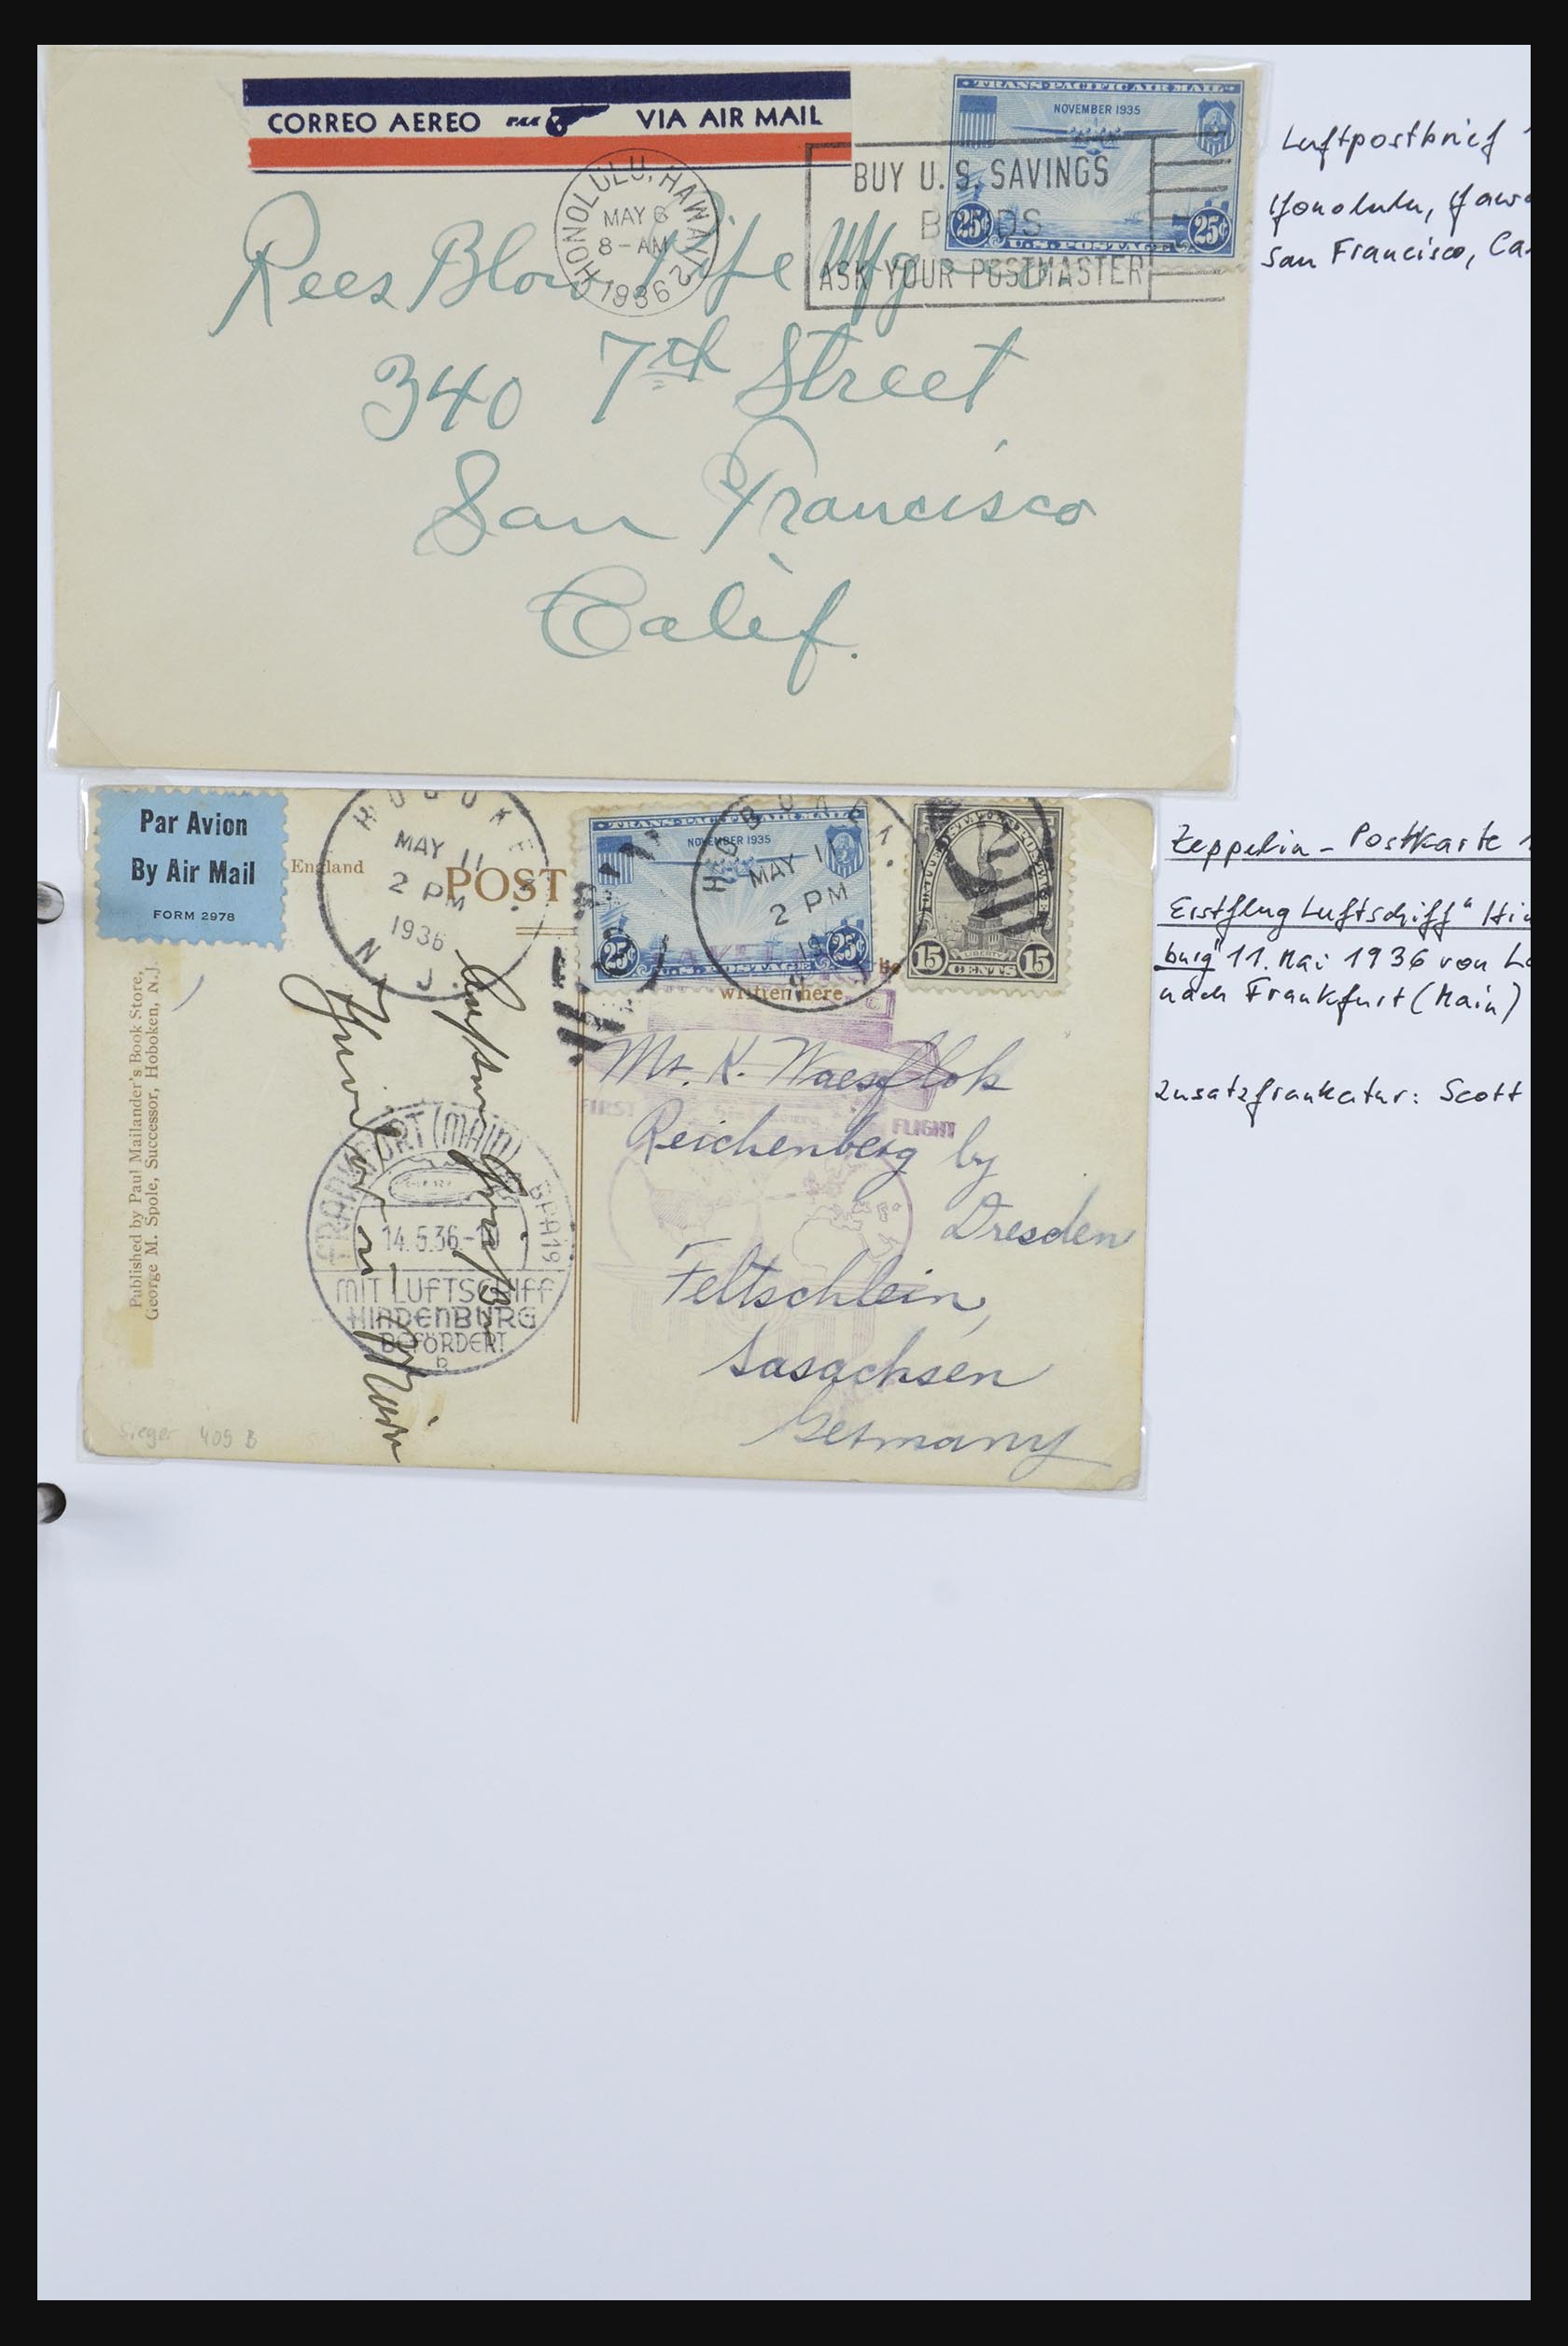 CORREO AEREO PAA VIA AIR MAIL
TRANS-PACIFIC AIR MAIL
NOVEMBER 1935
25¢ 25¢
U.S. POSTAGE
HONOLULU, HAWAII
MAY 6
8-AM
1936
BUY U.S. SAVINGS
BONDS
ASK YOUR POSTMASTER
Rees Blow Pipe Mfg
340 7th Street
San Francisco
Calif.
Luftpostbrief
Honolulu,
San Francisco,
Par Avion
By Air Mail
FORM 2978
England
POST
HOBOKE
MAY 11
2 PM
1936
N. J.
TRANS-PACIFIC AIR MAIL
NOVEMBER 1935
25¢ 25¢
U.S. POSTAGE
HOBOKE
MAY 11
2 PM
LIBERTY
15 CENTS 15
written here
FIRST FLIGHT
Mr. K.
Reichenberg by
Dresden
Feltschlein,
Sasachsen
Germany
FRANKFURT (MAIN)
14.5.36
MIT LUFTSCHIFF
HINDENBURG
BEFÖRDERT
b
Published by Paul Mailander's Book Store,
George M. Spole, Successor, Hoboken, N.J.
Sieger 409 B
Zeppelin-Postkarte
Erstflug Luftschiff "
burg" 11. Mai 1936 von
nach Frankfurt (Main)
Zusatzfrankatur: Scott